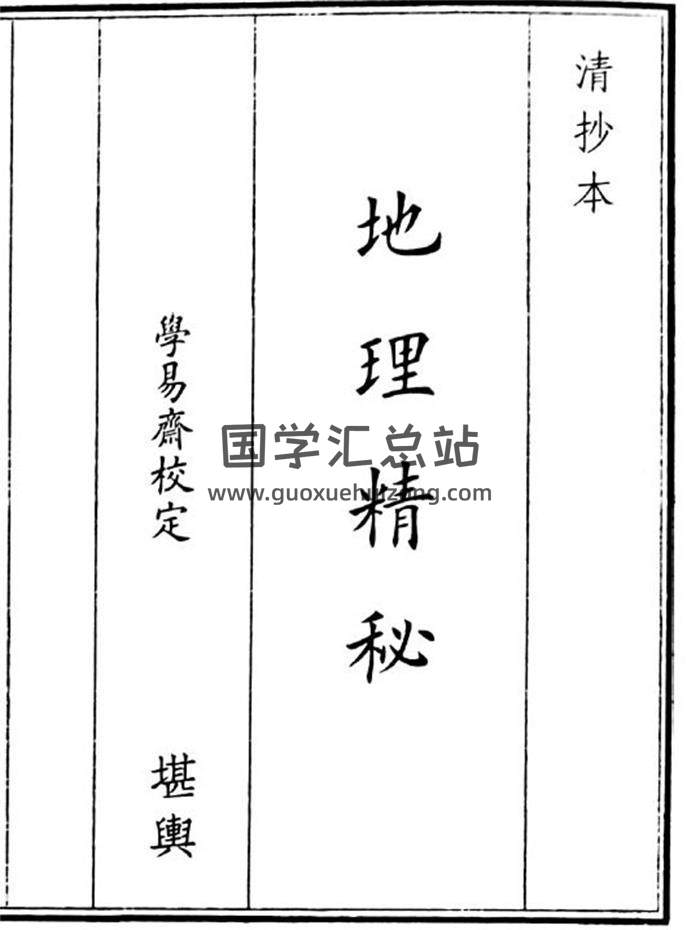 清抄本
地理精秘
學易齋校定
堪輿
国学汇总站
www.guoxuehuizong.com